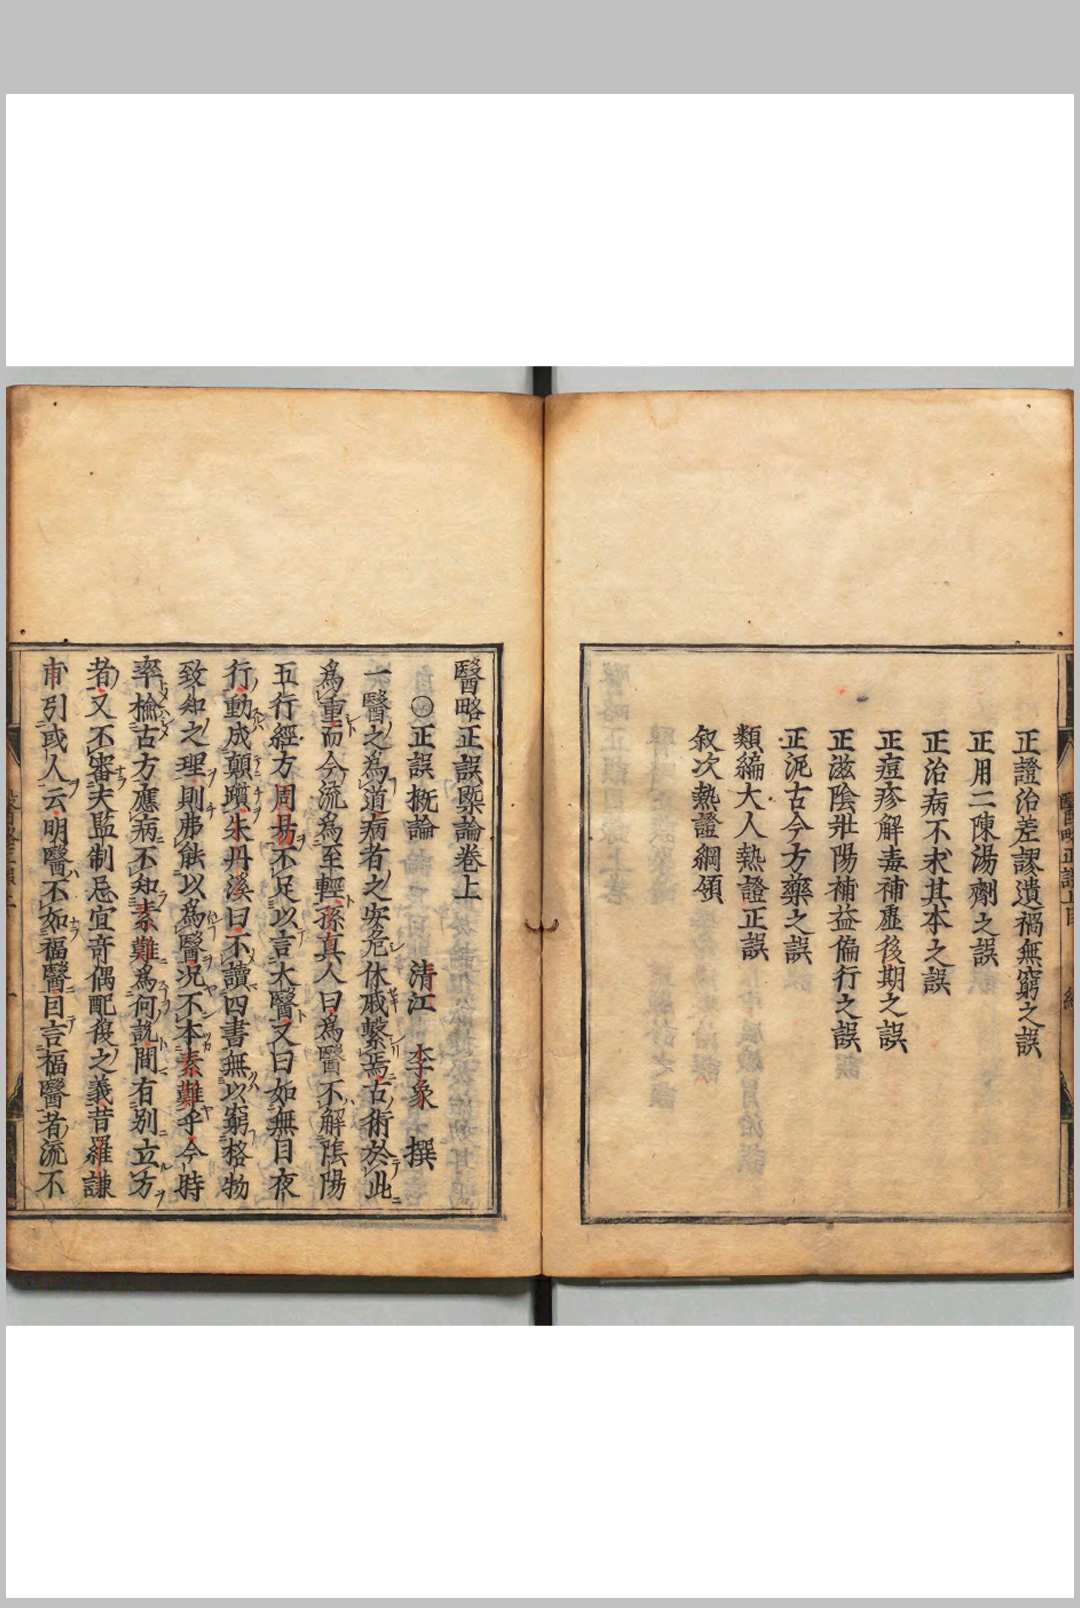 正證治差謬遺禍無窮之誤
正用二陳湯劑之誤
正治病不求其本之誤
正痘疹解毒補虛後期之誤
正滋陰壯陽補益偏行之誤
正泥古今方藥之誤
類編大人熱證正誤
叙次熱證綱領
醫略正誤槩論卷上
〇正誤概論 清江 李象 撰
一醫之為道病者之安危休戚繫焉古術於此
為重而今流為至輕孫真人曰為醫不解陰陽
五行經方周易不足以言大醫又曰如無目夜
行動成顛躓朱丹溪曰不讀四書無以窮格物
致知之理則弗能以為醫况不本素難乎今時
率檢古方應病不知素難為何說間有別立方
者又不審夫監制忌宜奇偶配復之義昔羅謙
甫引或人云明醫不如福醫目言福醫者流不